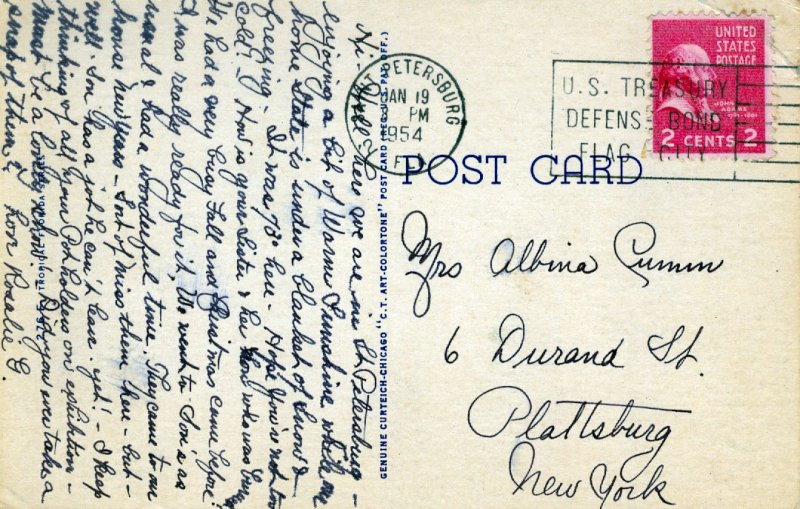 Hi - Well here we are in St Petersburg -
enjoying a bit of Warm Sunshine while my
home State is under a blanket of Snow &
freezing - It was 78° here - Hope You're not too
Cold! - How is your Sister & her
We had a very busy Fall and Christmas came before
I was really ready for it. We went to Son's as
usual & had a wonderful time. They came to our
house New Years - Sort of miss them here - but -
well - Son has a job he can't leave - yet! - I keep
thinking of all your Potholders on exhibition -
must be a lovely Did you ever take a
snap of them? Love Rosalie C.
GENUINE CURTEICH-CHICAGO "C.T. ART-COLORTONE" POST CARD (REG. U.S. PAT. OFF.)
ST. PETERSBURG
JAN 19
PM
1954
FLA.
U.S. TREASURY
DEFENSE BOND
FLAG CITY
UNITED
STATES
POSTAGE
JOHN
ADAMS
2 CENTS 2
POST CARD
Mrs Albina Cumm
6 Durand St.
Plattsburg
New York